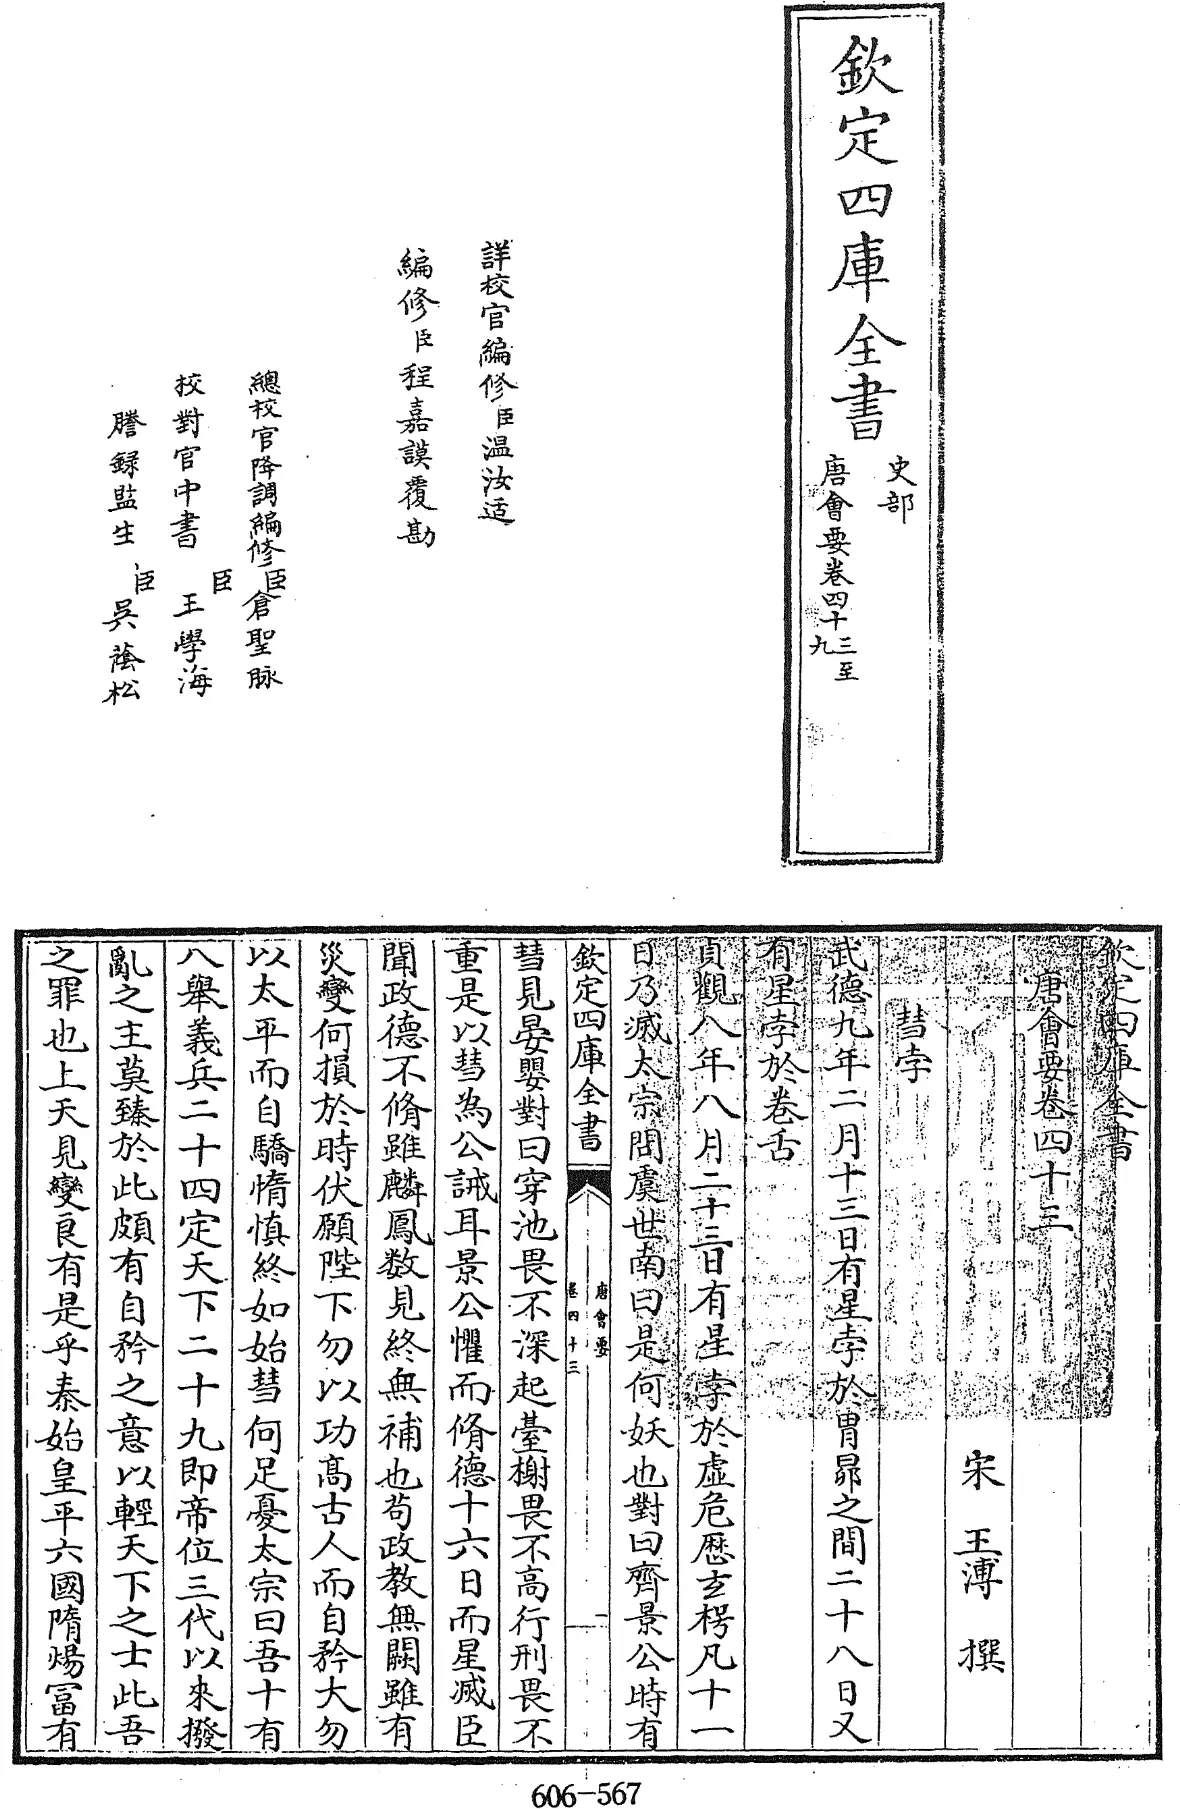 欽定四庫全書
史部
唐會要卷四十三至
九
詳校官編修臣溫汝适
編修臣程嘉謨覆勘
總校官降調編修臣倉聖脉
校對官中書臣王學海
謄錄監生臣吳蔭松
欽定四庫全書
唐會要卷四十三
宋王溥撰
彗孛
武德九年二月十三日有星孛於胃昴之間二十八日又
有星孛於卷舌
貞觀八年八月二十三日有星孛於虛危歷玄枵凡十一
日乃滅太宗問虞世南曰是何妖也對曰齊景公時有
欽定四庫全書
唐會要
卷四十三
一
彗見晏嬰對曰穿池畏不深起臺榭畏不高行刑畏不
重是以彗為公誡耳景公懼而脩德十六日而星滅臣
聞政德不脩雖麟鳳數見終無補也苟政教無闕雖有
災變何損於時伏願陛下勿以功高古人而自矜大勿
以太平而自驕惰慎終如始彗何足憂太宗曰吾十有
八舉義兵二十四定天下二十九即帝位三代以來撥
亂之主莫臻於此頗有自矜之意以輕天下之士此吾
之罪也上天見變良有是乎秦始皇平六國隋煬富有
606-567